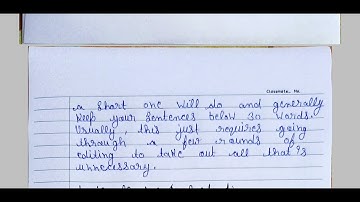 Classmate. No.
a short one will do and generally
keep your sentences below 30 words.
Usually, this just requires going
through a few rounds of
editing to take out all that is
unnecessary.